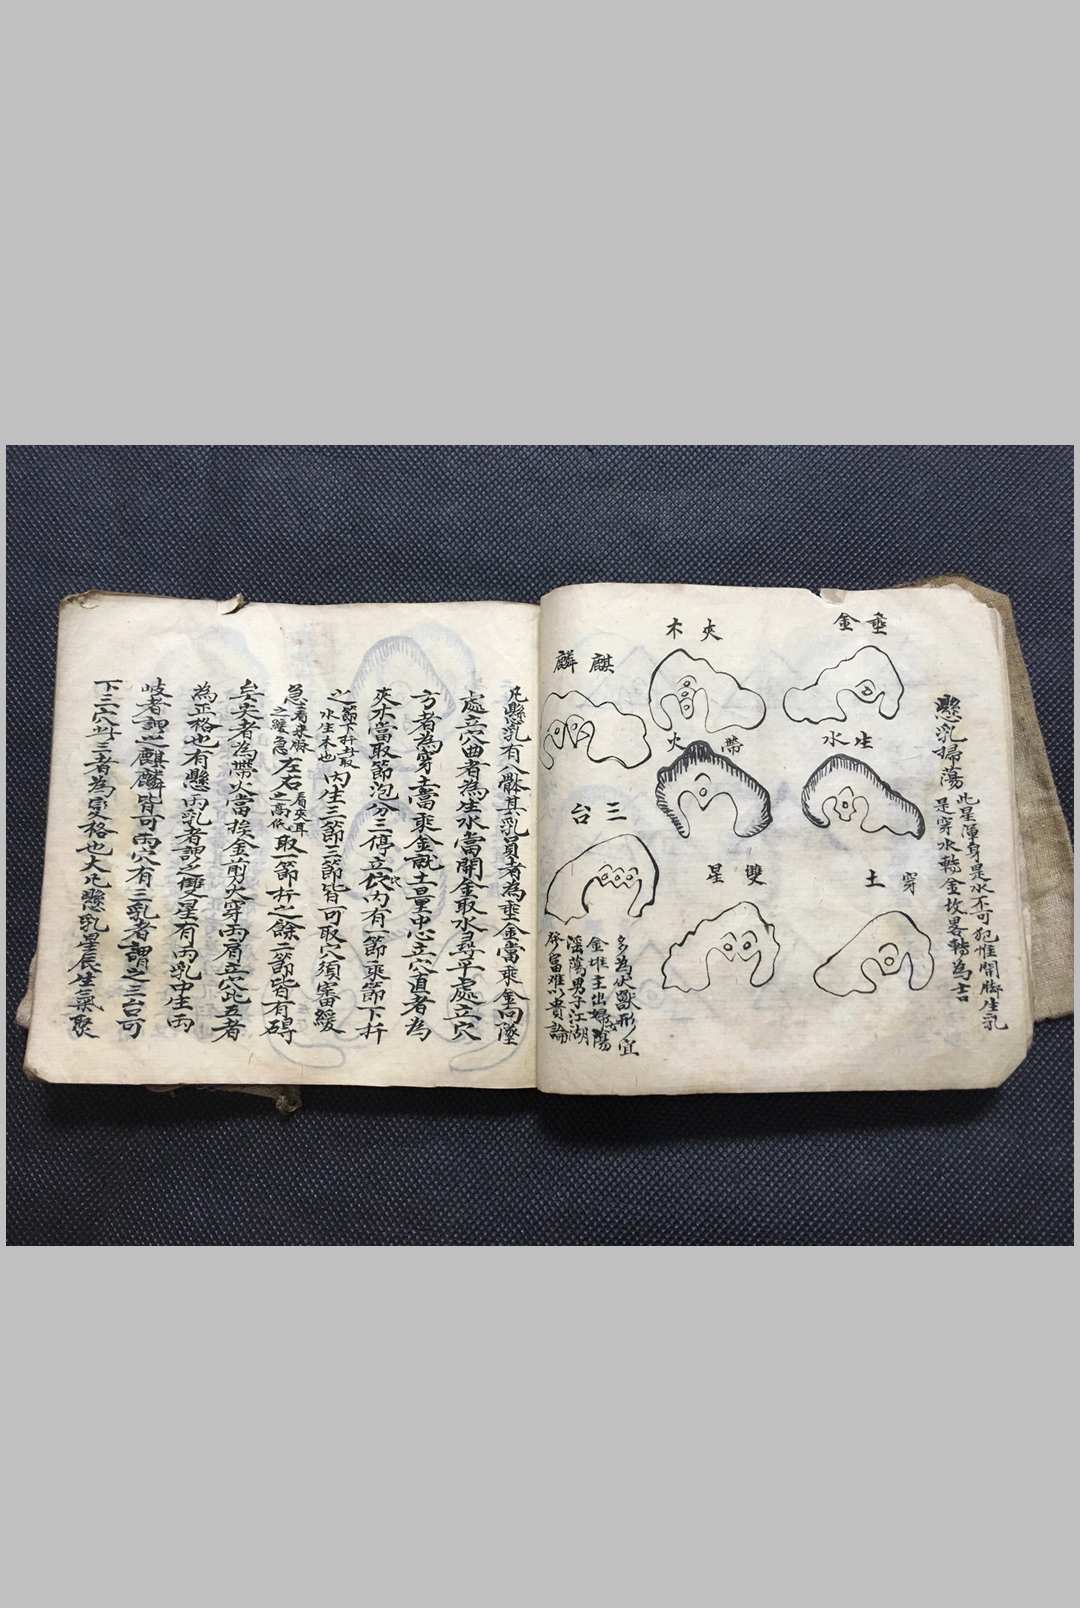 懸乳掃蕩
此星渾身是水不可犯惟開脚生乳
是穿水轉金故畧轉為吉
垂金
夾木
麒麟
生水
帶火
三台
穿土
雙星
多為伏獸形宜
金堆主出婦
淫蕩男子江湖
富難以貴論
凡懸乳有八骸其乳員者為垂金當乘金向墜
處立穴曲者為生水當開金取水尋平處立穴
方者為穿土當乘金就土量中心立穴直者為
夾木當取節泡分三停立穴內有一節乘節下扦
之
一節下扦取
水生木也
內生三節三節皆可取穴須審緩
急
看來脉
之緩急
左右
看夾耳
之高低
取一節扦之餘二節皆有碍
尖者為帶火當挨金剪火穿兩肩立穴此五者
為正格也有懸兩乳者謂之雙星有兩乳中生兩
岐者謂之麒麟皆可兩穴有三乳者謂之三台可
下三穴此三者為变格也大凡懸乳星辰生氣聚